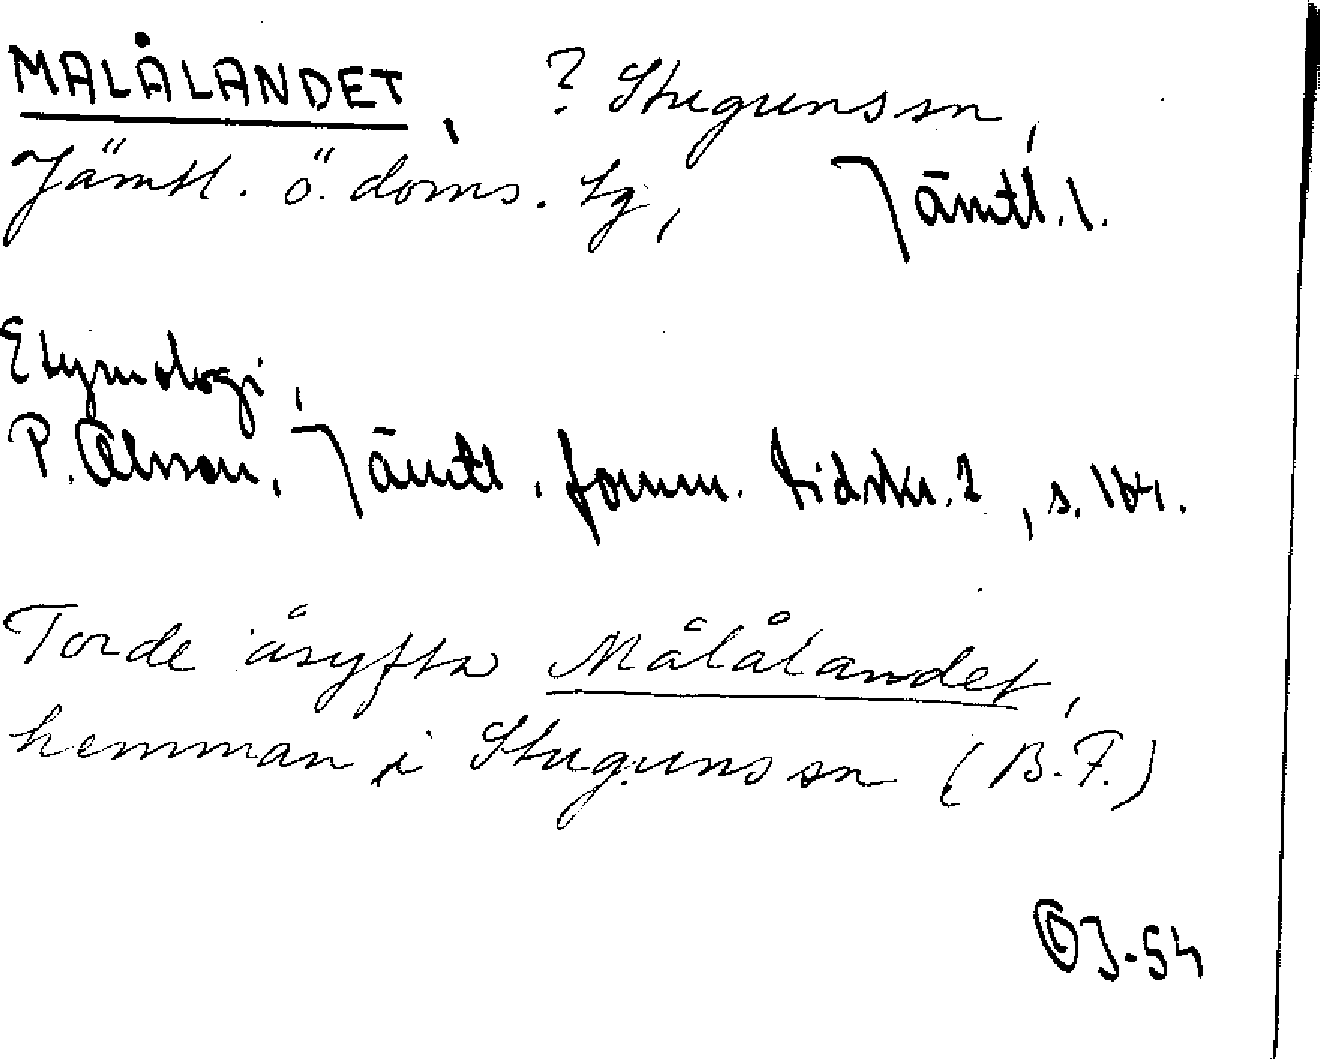 MALÅLANDET, ? Stugunssn,
Jämtl. ö. doms. tg, Jämtl. l.
Etymologi,
P. Olsson, Jämtl. fornm. tidskr. 2, s. 164.
Torde åsyfta Målålandet,
hemman i Stugunssn (B.F.)
OJ-54